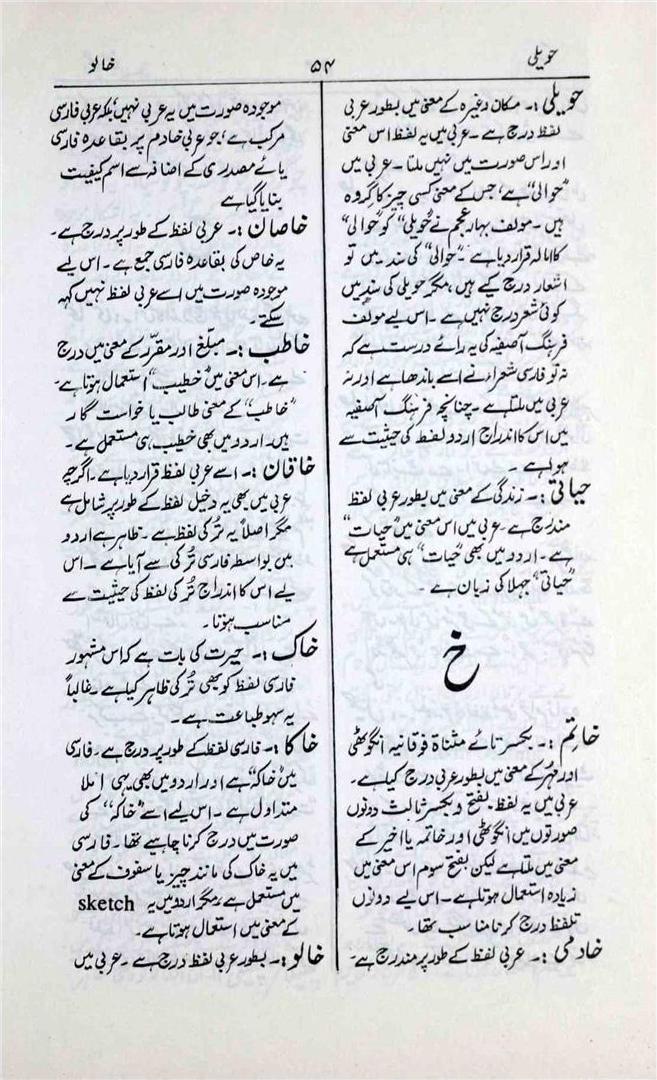 حویلی
۵۴
خالو
حویلی :۔ مکان وغیرہ کے معنی میں بطور عربی
لفظ درج ہے۔ عربی میں یہ لفظ اس معنی
اور اس صورت میں نہیں ملتا۔ عربی میں
”حوالی“ ہے، جس کے معنی کسی چیز کا گروہ
ہیں۔ مولف بہار عجم نے ”حویلی“ کو ”حوالی“
کا امالہ قرار دیا ہے۔ ”حوالی“ کی سند میں تو
اشعار درج کیے ہیں، مگر حویلی کی سند میں
کوئی شعر درج نہیں ہے۔ اس لیے مولف
فرہنگ آصفیہ کی یہ رائے درست ہے کہ
نہ تو فارسی شعراء نے اسے باندھا ہے اور نہ
عربی میں ملتا ہے۔ چنانچہ فرہنگ آصفیہ
میں اس کا اندراج اردو لفظ کی حیثیت سے
ہوا ہے۔
حیاتی :۔ زندگی کے معنی میں بطور عربی لفظ
مندرج ہے۔ عربی میں اس معنی میں ”حیات“
ہے۔ اردو میں بھی ”حیات“ ہی مستعمل ہے
”حیاتی“ جہلا کی زبان ہے۔
خ
خاتِم :۔ بکسر تائے مثناۃ فوقانیہ انگوٹھی
اور مُہر کے معنی میں بطور عربی درج کیا ہے۔
عربی میں یہ لفظ۔ بفتح و بکسر ثالث دونوں
صورتوں میں انگوٹھی اور خاتمہ یا اخیر کے
معنی میں ملتا ہے لیکن بفتح سوم اس معنی میں
زیادہ استعمال ہوتا ہے۔ اس لیے دونوں
تلفظ درج کرنا مناسب تھا۔
خادمی :۔ عربی لفظ کے طور پر مندرج ہے۔
موجودہ صورت میں یہ عربی نہیں، بلکہ عربی فارسی
مرکب ہے، جو عربی خادم پر بقاعدہ فارسی
یائے مصدری کے اضافہ سے اسم کیفیت
بنایا گیا ہے
خاصان :۔ عربی لفظ کے طور پر درج ہے۔
یہ خاص کی بقاعدہ فارسی جمع ہے۔ اس لیے
موجودہ صورت میں اسے عربی لفظ نہیں کہہ
سکتے۔
خاطب :۔ مبلّغ اور مقرّر کے معنی میں درج
ہے۔ اس معنی میں ”خطیب“ استعمال ہوتا ہے۔
”خاطب“ کے معنی طالب یا خواست گار
ہیں۔ اردو میں بھی خطیب ہی مستعمل ہے۔
خاقان :۔ اسے عربی لفظ قرار دیا ہے۔ اگرچہ
عربی میں بھی یہ دخیل لفظ کے طور پر شامل ہے
مگر اصلاً یہ تُرکی لفظ ہے۔ ظاہر ہے اردو
میں بواسطہ فارسی تُرکی سے آیا ہے۔ اس
لیے اس کا اندراج تُرکی لفظ کی حیثیت سے
مناسب ہوتا۔
خاک :۔ حیرت کی بات ہے کہ اس مشہور
فارسی لفظ کو بھی تُرکی ظاہر کیا ہے۔ غالباً
یہ سہو طباعت ہے۔
خاکا :۔ فارسی لفظ کے طور پر درج ہے۔ فارسی
میں ”خاکہ“ ہے اور اردو میں بھی یہی املا
متداول ہے۔ اس لیے اسے ”خاکہ“ کی
صورت میں درج کرنا چاہیے تھا۔ فارسی
میں یہ خاک کی مانند چیز یا سفوف کے معنی
میں مستعمل ہے، مگر اردو میں یہ sketch
کے معنی میں استعمال ہوتا ہے۔
خالو :۔ بطور عربی لفظ درج ہے۔ عربی میں